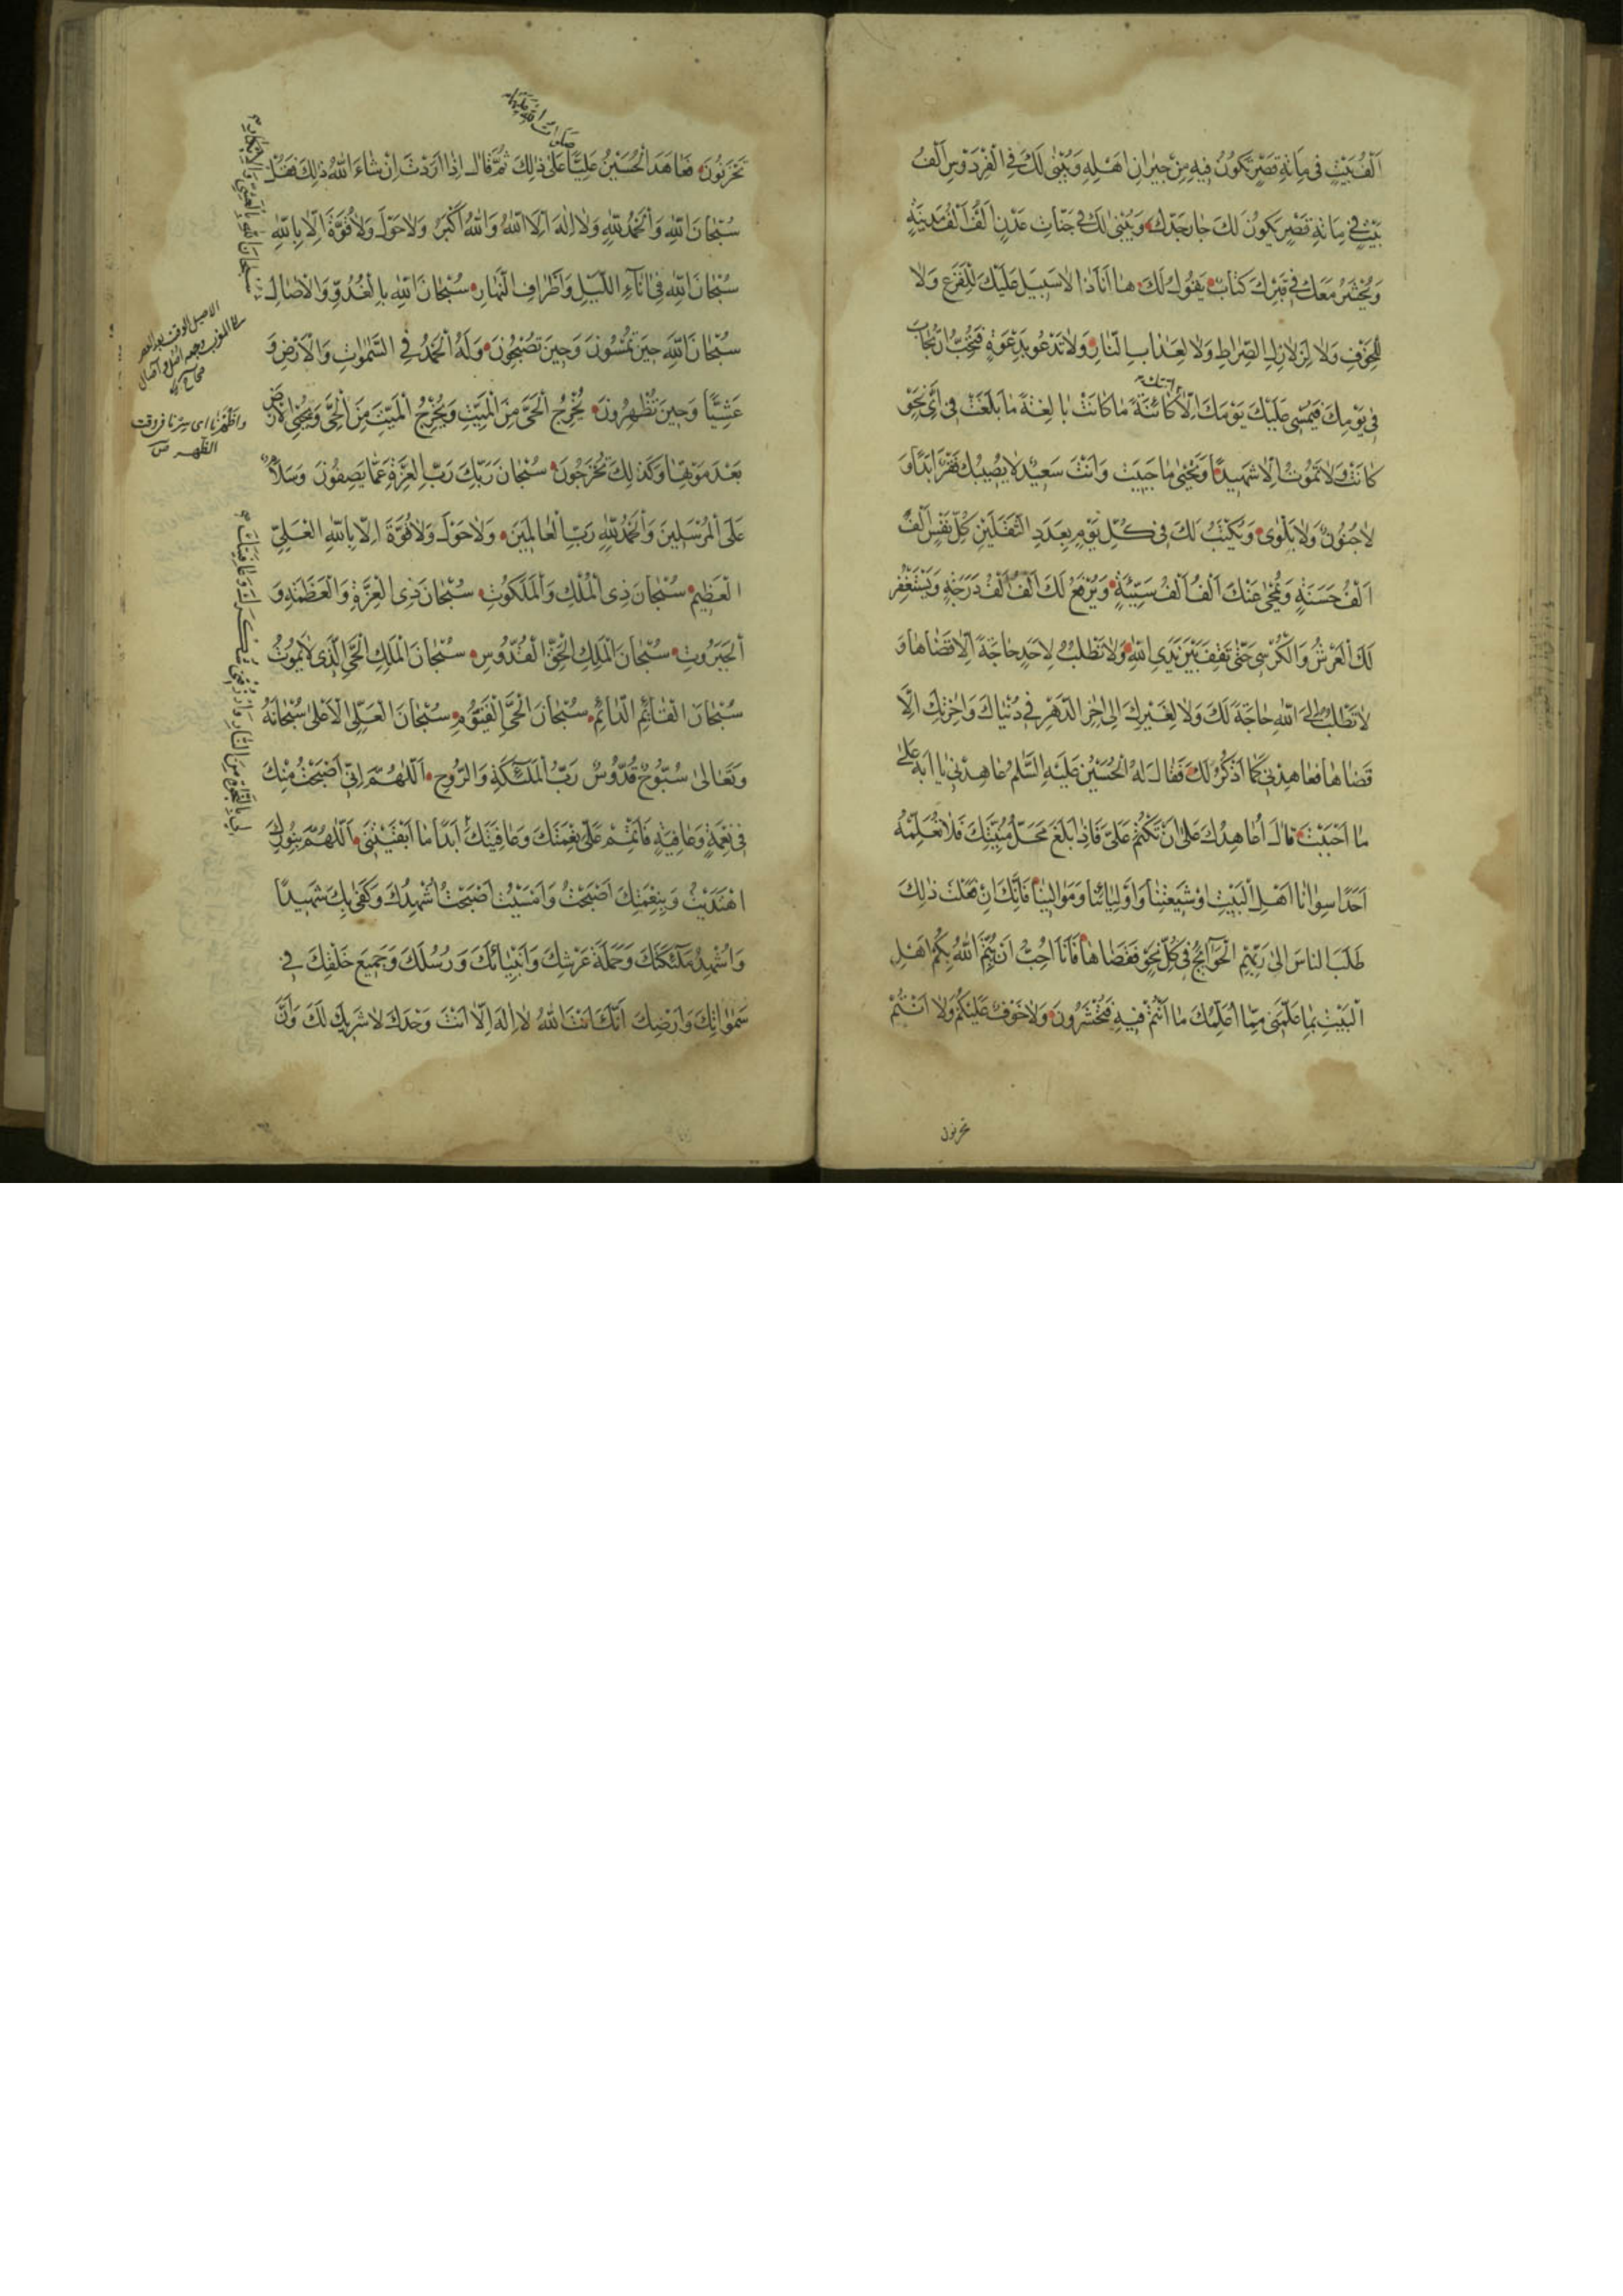 اَلْفُ بَيْتٍ فِي مِائَةِ قَصْرٍ تَكُونُ فِيهِ مِنْ جِيرَانِ اَهْلِهِ وَيُبْنٰى لَكَ فِي الْفِرْدَوْسِ اَلْفُ
بَيْتٍ فِي مِائَةِ قَصْرٍ يَكُونُ لَكَ جَارَ جَدِّكَ وَيُبْنٰى لَكَ فِي جَنَّاتِ عَدْنٍ اَلْفُ اَلْفِ مَدِينَةٍ
وَيُحْشَرُ مَعَكَ فِي قَبْرِكَ كِتَابٌ يَقُولُ لَكَ هَا اَنَا ذَا لَا سَبِيلَ عَلَيْكَ لِلْفَزَعِ وَلَا
لِلْخَوْفِ وَلَا لِزَلَازِلِ الصِّرَاطِ وَلَا لِعَذَابِ النَّارِ وَلَا تَدْعُو بِدَعْوَةٍ فَتُحِبُّ اَنْ تُجَابَ
فِي يَوْمِكَ فَيُمْسِي عَلَيْكَ يَوْمُكَ اِلَّا كَائِنَةً مَا كَانَتْ بَالِغَةً مَا بَلَغَتْ فِي اَيِّ نَحْوٍ
كَانَتْ وَلَا تَمُوتُ اِلَّا شَهِيدًا وَتَحْيٰى مَا حَيِيتَ وَاَنْتَ سَعِيدٌ لَا يُصِيبُكَ فَقْرٌ اَبَدًا وَ
لَا جُنُونٌ وَلَا بَلْوٰى وَيُكْتَبُ لَكَ فِي كُلِّ يَوْمٍ بِعَدَدِ الثَّقَلَيْنِ كُلِّ نَفْسٍ اَلْفُ
اَلْفِ حَسَنَةٍ وَيُمْحٰى عَنْكَ اَلْفُ اَلْفِ سَيِّئَةٍ وَيُرْفَعُ لَكَ اَلْفُ اَلْفِ دَرَجَةٍ وَيَسْتَغْفِرُ
لَكَ الْعَرْشُ وَالْكُرْسِيُّ حَتّٰى تَقِفَ بَيْنَ يَدَيِ اللّٰهِ وَلَا تَطْلُبُ لِاَحَدٍ حَاجَةً اِلَّا قَضَاهَا وَ
لَا تَطْلُبُ اِلَى اللّٰهِ حَاجَةً لَكَ وَلَا لِغَيْرِكَ اِلٰى اٰخِرِ الدَّهْرِ فِي دُنْيَاكَ وَاٰخِرَتِكَ اِلَّا
قَضَاهَا فَعَاهِدْنِي كَمَا اَذْكُرُ لَكَ فَقَالَ لَهُ الْحُسَيْنُ عَلَيْهِ السَّلٰمُ عَاهِدْنِي يَا اَبَهْ عَلٰى
مَا اَحْبَبْتَ قَالَ اُعَاهِدُكَ عَلٰى اَنْ تَكْتُمَ عَلَيَّ فَاِذَا بَلَغَ مَحَلُّ مَنِيَّتِكَ فَلَا تُعَلِّمْهُ
اَحَدًا سِوَانَا اَهْلَ الْبَيْتِ اَوْ شِيعَتَنَا وَاَوْلِيَائَنَا وَمَوَالِيَنَا فَاِنَّكَ اِنْ فَعَلْتَ ذٰلِكَ
طَلَبَ النَّاسُ اِلٰى رَبِّهِمُ الْحَوَآئِجَ فِي كُلِّ نَحْوٍ فَقَضَاهَا فَاَنَا اُحِبُّ اَنْ يُتِمَّ اللّٰهُ بِكُمْ اَهْلَ
الْبَيْتِ بِمَا عَلَّمَنِي مِمَّا اُعَلِّمُكَ مَا اَنْتُمْ فِيهِ فَتُحْشَرُونَ وَلَا خَوْفٌ عَلَيْكُمْ وَلَا اَنْتُمْ
تحزنون
تَحْزَنُونَ فَعَاهَدَ الْحُسَيْنُ عَلِيًّا عَلٰى ذٰلِكَ ثُمَّ قَالَ اِذَا اَرَدْتَ اِنْ شَاءَ اللّٰهُ ذٰلِكَ فَقُلْ
سُبْحَانَ اللّٰهِ وَالْحَمْدُ لِلّٰهِ وَلَا اِلٰهَ اِلَّا اللّٰهُ وَاللّٰهُ اَكْبَرُ وَلَا حَوْلَ وَلَا قُوَّةَ اِلَّا بِاللّٰهِ
سُبْحَانَ اللّٰهِ فِي اٰنَآءِ اللَّيْلِ وَاَطْرَافِ النَّهَارِ سُبْحَانَ اللّٰهِ بِالْغُدُوِّ وَالْاٰصَالِ
سُبْحَانَ اللّٰهِ حِينَ تُمْسُونَ وَحِينَ تُصْبِحُونَ وَلَهُ الْحَمْدُ فِي السَّمٰوَاتِ وَالْاَرْضِ وَ
عَشِيًّا وَحِينَ تُظْهِرُونَ يُخْرِجُ الْحَيَّ مِنَ الْمَيِّتِ وَيُخْرِجُ الْمَيِّتَ مِنَ الْحَيِّ وَيُحْيِي الْاَرْضَ
بَعْدَ مَوْتِهَا وَكَذٰلِكَ تُخْرَجُونَ سُبْحَانَ رَبِّكَ رَبِّ الْعِزَّةِ عَمَّا يَصِفُونَ وَسَلَامٌ
عَلَى الْمُرْسَلِينَ وَالْحَمْدُ لِلّٰهِ رَبِّ الْعَالَمِينَ وَلَا حَوْلَ وَلَا قُوَّةَ اِلَّا بِاللّٰهِ الْعَلِيِّ
الْعَظِيمِ سُبْحَانَ ذِي الْمُلْكِ وَالْمَلَكُوتِ سُبْحَانَ ذِي الْعِزَّةِ وَالْعَظَمَةِ وَ
الْجَبَرُوتِ سُبْحَانَ الْمَلِكِ الْحَقِّ الْقُدُّوسِ سُبْحَانَ الْمَلِكِ الْحَيِّ الَّذِي لَا يَمُوتُ
سُبْحَانَ الْقَائِمِ الدَّائِمِ سُبْحَانَ الْحَيِّ الْقَيُّومِ سُبْحَانَ الْعَلِيِّ الْاَعْلٰى سُبْحَانَهُ
وَتَعَالٰى سُبُّوحٌ قُدُّوسٌ رَبُّ الْمَلٰٓئِكَةِ وَالرُّوحِ اَللّٰهُمَّ اِنِّي اَصْبَحْتُ مِنْكَ
فِي نِعْمَةٍ وَعَافِيَةٍ فَاَتْمِمْ عَلَيَّ نِعْمَتَكَ وَعَافِيَتَكَ اَبَدًا مَا اَبْقَيْتَنِي اَللّٰهُمَّ بِنُورِكَ
اهْتَدَيْتُ وَبِنِعْمَتِكَ اَصْبَحْتُ وَاَمْسَيْتُ اَصْبَحْتُ اُشْهِدُكَ وَكَفٰى بِكَ شَهِيدًا
وَاُشْهِدُ مَلٰٓئِكَتَكَ وَحَمَلَةَ عَرْشِكَ وَاَنْبِيَائَكَ وَرُسُلَكَ وَجَمِيعَ خَلْقِكَ فِي
سَمٰوَاتِكَ وَاَرْضِكَ اَنَّكَ اَنْتَ اللّٰهُ لَا اِلٰهَ اِلَّا اَنْتَ وَحْدَكَ لَا شَرِيكَ لَكَ وَاَنَّ
سُبْحَانَ اللّٰهِ بِالْعَشِيِّ وَالْاِبْكَارِ
الاصيل الوقت بعد العصر
الى المغرب وجمعه اصل و آصال
واظهرنا اى سرنا فى وقت
الظهر
بِالنَّجَاةِ مِنَ النَّارِ وَارْزُقْنِي شُكْرَكَ وَعَافِيَتَكَ